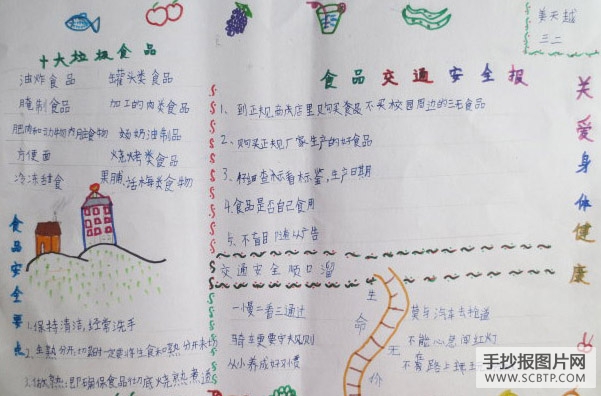 姜天越
三二
十大垃圾食品
油炸食品 罐头类食品
腌制食品 加工的肉类食品
肥肉和动物内脏食物 奶油制品
方便面 烧烤类食品
冷冻甜食 果脯、话梅类食物
食品交通安全报
1、到正规商店里购买食品不买校园周边的三无食品
2、购买正规厂家生产的好食品
3、仔细查标看标鉴,生产日期
4、食品是否自己食用
5、不盲目随从广告
关爱身体健康
食品安全要点
1.保持清洁,经常洗手
2.生熟分开
3.做熟:即确保食品彻底烧熟煮透
交通安全顺口溜
一慢二看三通过
骑车更要守大规则
从小养成好习惯
生命无价
莫与汽车去抢道
不能心急闯红灯
手抄报图片网
WWW.SCBTP.COM